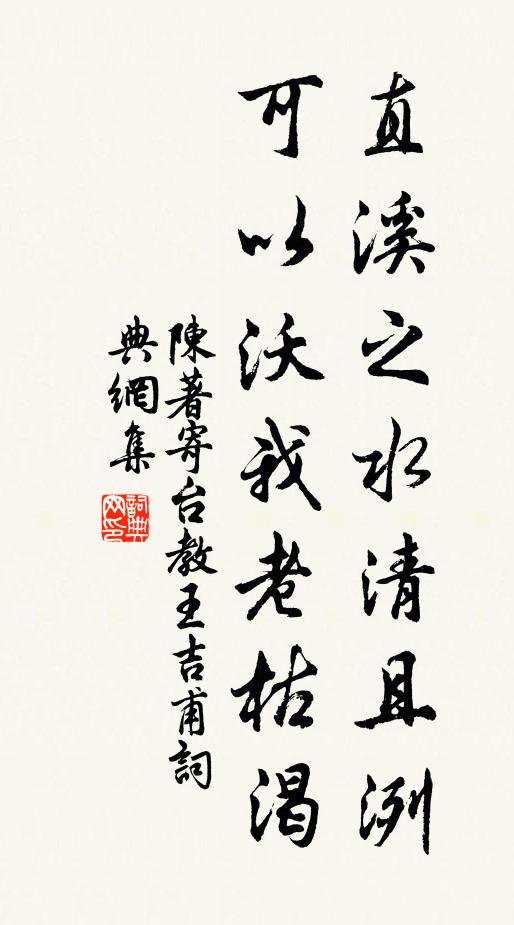 直溪之水清且洌
可以沃我老枯渴
陳著寄台教王吉甫詞
典網集
詞典網印